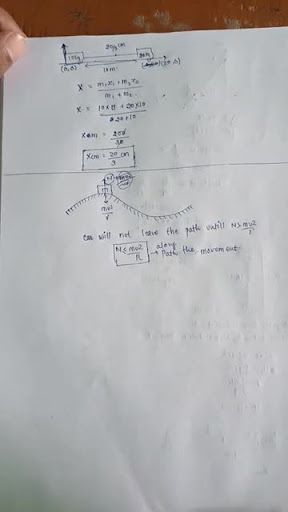 10kg 20kg
(0,0) 10m (10,0)
X = m₁x₁ + m₂x₂ / m₁ + m₂
X = 10×0 + 20×10 / 20+10
Xcm = 200 / 30
Xcm = 20/3 cm
N
m
mv²/r
Car will not leave the path untill N≥mv2/r
N≤mv2/R → along Path the movement